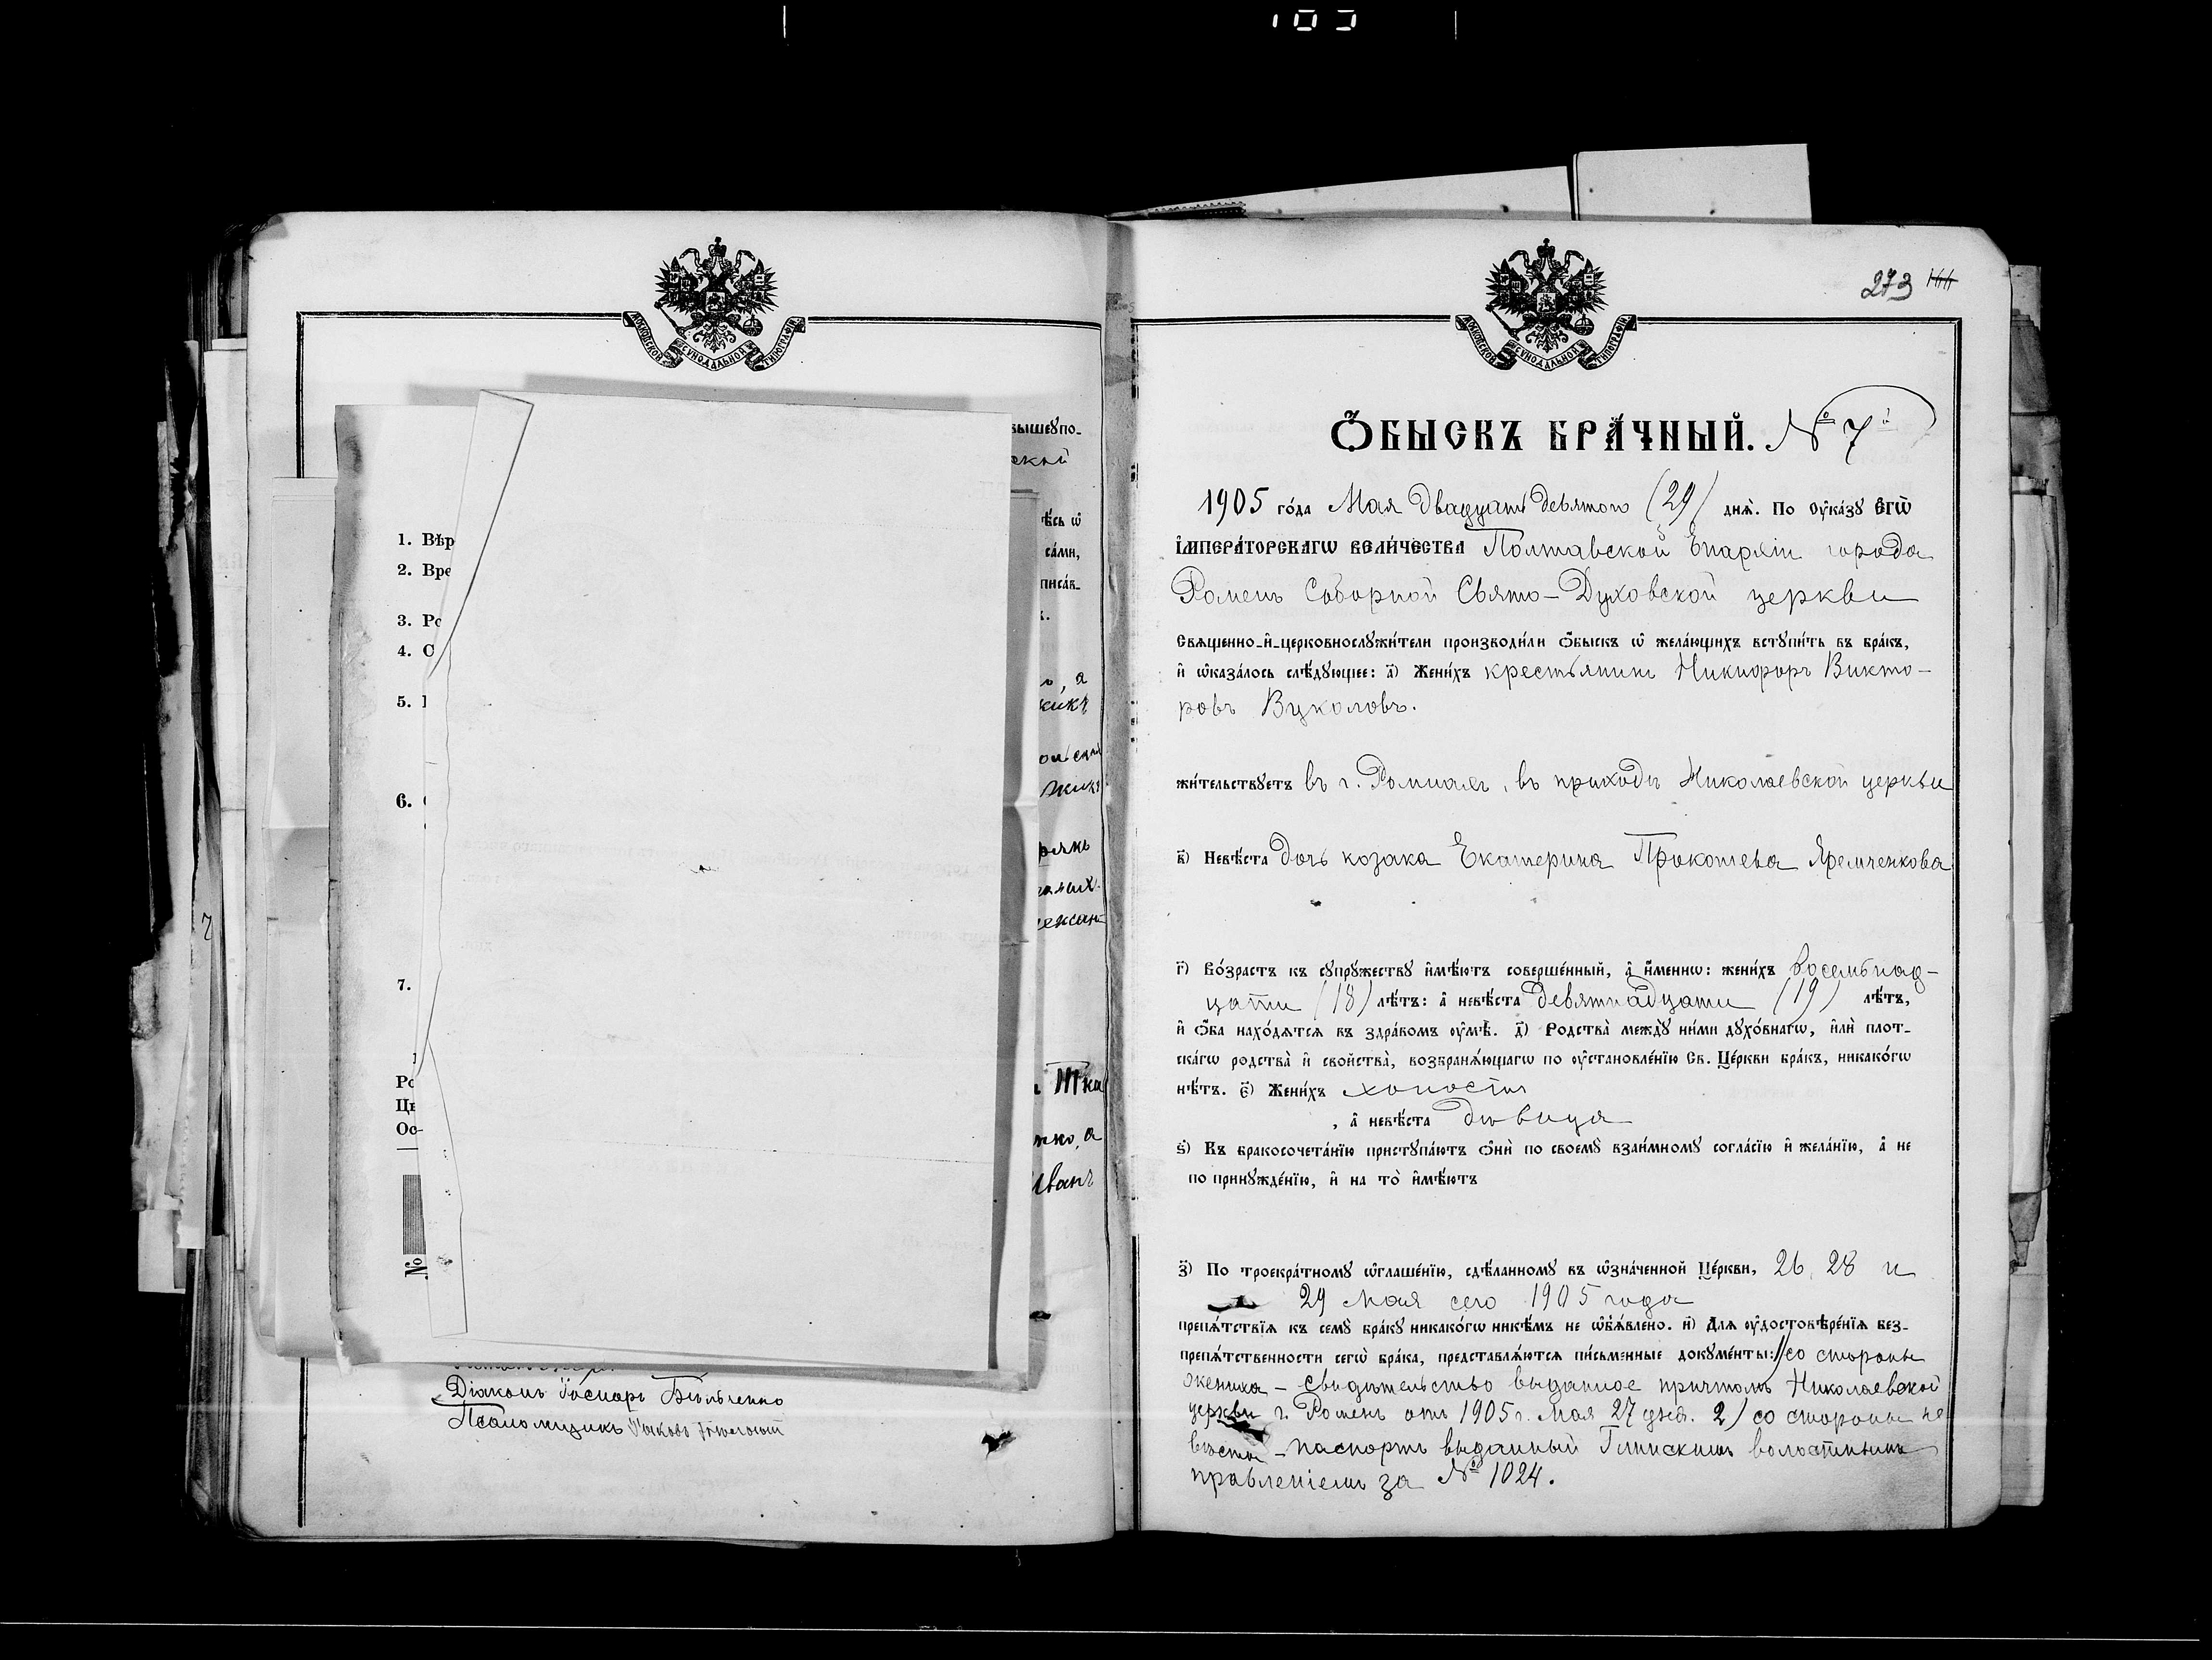 МОСКОВСКОЙ СѴНОДАЛЬНОЙ ТИПОГРАФІИ
вышеꙋпо-
1. Вѣр
2. Вре
3. Ро
4. С
5.
6.
7.
Ро
Цѣ
Ос-
№
, а
Иванъ
Діаконъ
Псаломщикъ
273
МОСКОВСКОЙ СѴНОДАЛЬНОЙ ТИПОГРАФІИ
Ѻ҆БЫСКЪ БРА́ЧНЫЙ. № 7й
1905 го́да Мая двадцать девятого (29) днѧ̀. По ᲂу҆ка́зꙋ Є҆ГѠ̀
І҆МПЕРА́ТОРСКАГѠ ВЕЛИ́ЧЕСТВА Полтавской Епархіи города
Роменъ Соборной Свято-Духовской церкви
Свѧщенно-и҆-церковнослꙋжи́тели производи́ли ѻ҆́быскъ ѡ҆ жела́ющихъ встꙋпи́ть въ бра́къ,
и҆ ѡ҆каза́лось слѣ́дꙋющее: а҃) Жени́хъ крестьянинъ Никифоръ Викто-
ровъ Вуколовъ.
жи́тельствꙋетъ въ г. Ромнахъ, въ приходѣ Николаевской церкви
в҃) Невѣ́ста дочь козака Екатерина Прокопѣева Яремченкова
г҃) Во́зрастъ къ сꙋпрꙋ́жествꙋ и҆мѣ́ютъ соверше́нный, а҆ и҆́меннѡ: жени́хъ восемьнад-
цати (18) лѣ́тъ: а҆ невѣ́ста девятнадцати (19) лѣ́тъ,
и҆ ѻ҆́ба нахо́дѧтсѧ въ здра́вомъ ᲂу҆мѣ̀. д҃) Родства̀ междꙋ̀ ни́ми дꙋхо́внагѡ, и҆лѝ плот-
ска́гѡ родства̀ и҆ свойства̀, возбранѧ́ющагѡ по ᲂу҆становле́нїю Св. Це́ркви бра́къ, никако́гѡ
нѣ́тъ. є҃) Жени́хъ холостъ
, а҆ невѣ́ста дѣвица
ѕ҃) Къ бракосочета́нїю пристꙋпа́ютъ ѻ҆нѝ по своемꙋ̀ взаи́мномꙋ согла́сїю и҆ жела́нїю, а҆ не
по принꙋжде́нїю, и҆ на то̀ и҆мѣ́ютъ
з҃) По троекра́тномꙋ ѡ҆глаше́нїю, сдѣ́ланномꙋ въ ѡ҆зна́ченной Це́ркви, 26, 28 и
29 мая сего 1905 года
препѧ́тствїѧ къ семꙋ̀ бра́кꙋ никако́гѡ никѣ́мъ не ѡ҆б̾ѧ́влено. и҃) Длѧ ᲂу҆достовѣре́нїѧ без-
препѧ́тственности сегѡ̀ бра́ка, представлѧ́ютсѧ пи́сьменные докꙋме́нты: 1) со стороны
жениха – свидѣтельство выданное причтомъ Николаевской
церкви г. Роменъ отъ 1905 г. мая 27 дня. 2) со стороны не
вѣсты – паспортъ выданный Глинскимъ волостнымъ
правленіемъ за № 1024.